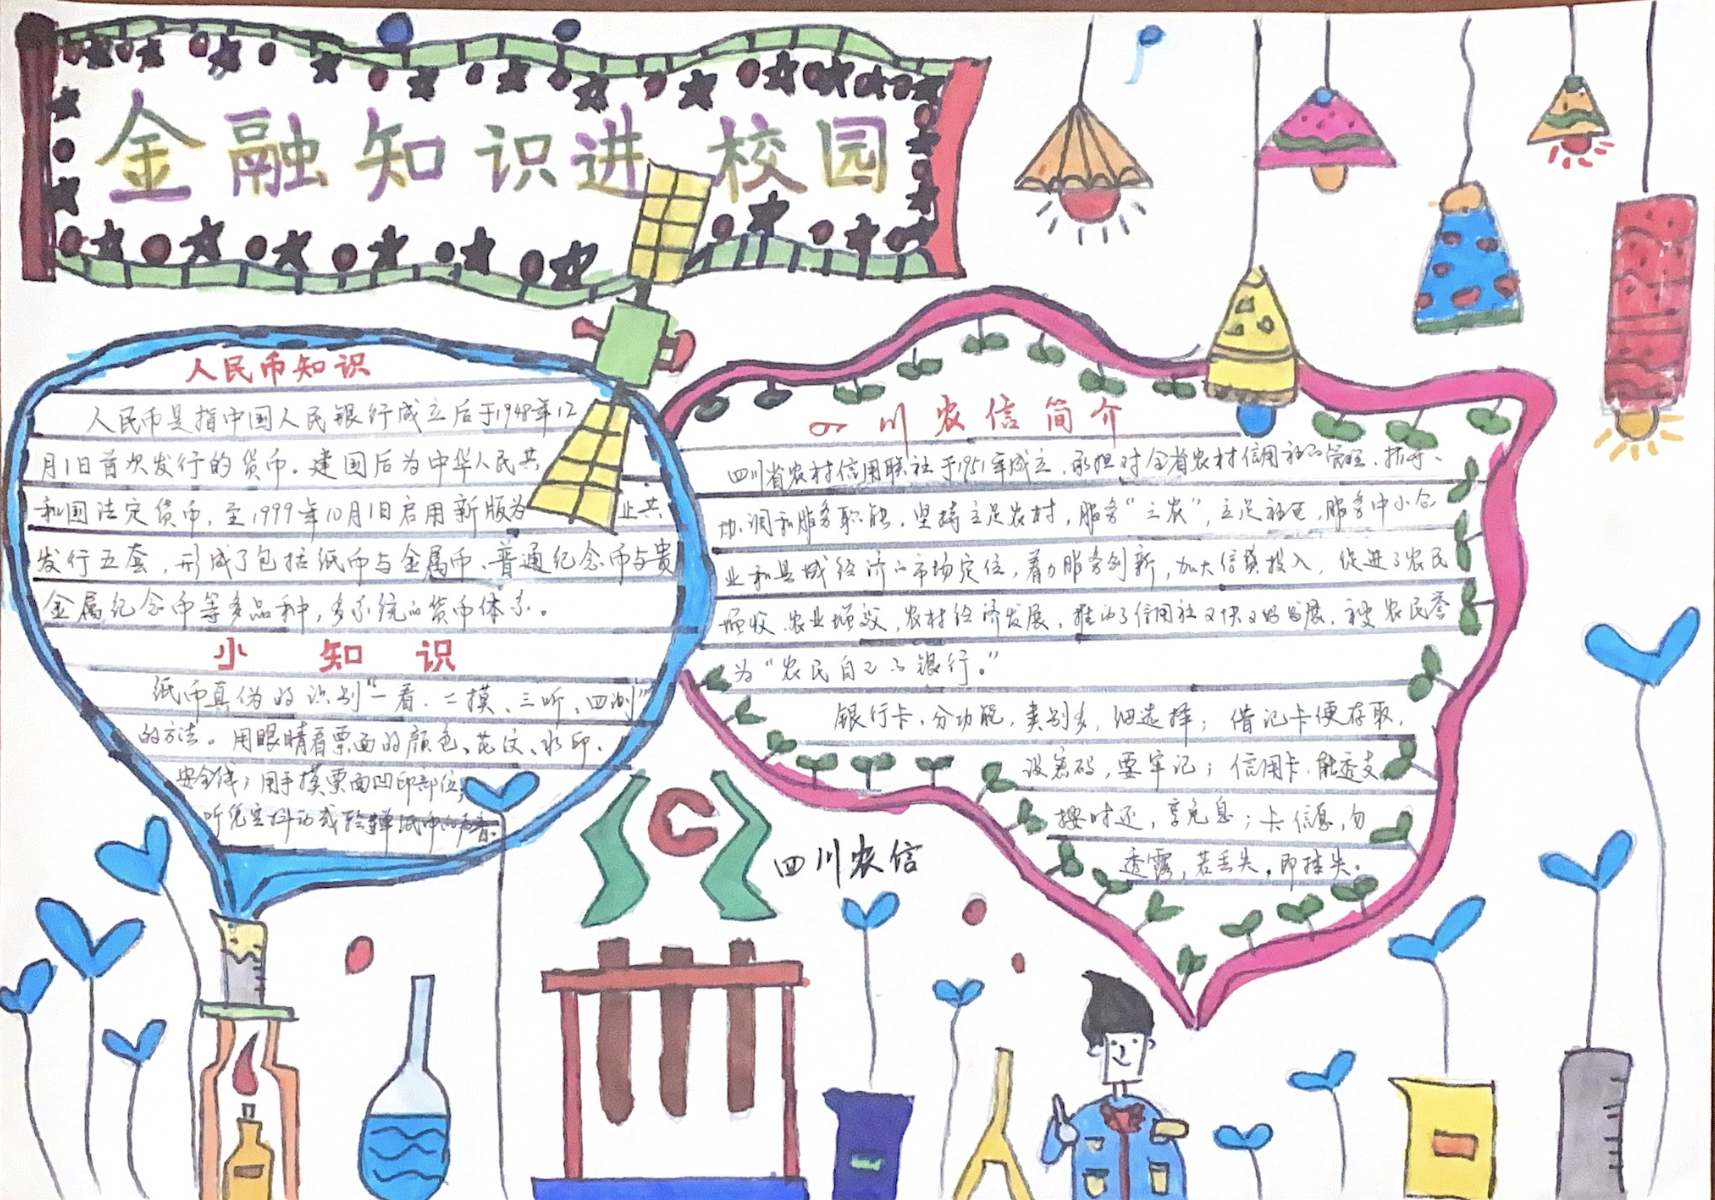 金融知识进校园
人民币知识
人民币是指中国人民银行成立后于1948年12
月1日首次发行的货币。建国后为中华人民共
和国法定货币，至1999年10月1日启用新版为 止共
发行五套，形成了包括纸币与金属币、普通纪念币与贵
金属纪念币等多品种，多系统的货币体系。
小知识
纸币真伪的识别“一看、二摸、三听、四测”
的方法。用眼睛看票面的颜色、花纹、水印、
安全线；用手摸票面凹印部位；
听
四川农信简介
四川省农村信用联社于1951年成立，承担对全省农村信用社的管理、指导、
协调和服务职能，坚持立足农村，服务“三农”，立足社区，服务中小企
业和县域经济的市场定位，着力服务创新，加大信贷投入，促进了农民
增收、农业增效，农村经济发展，推动了信用社又快又好发展，被农民誉
为“农民自己的银行。”
银行卡，分功能，类别多，细选择；借记卡便存取，
设密码，要牢记；信用卡，能透支
按时还，享免息；卡信息，勿
透露，若丢失，即挂失。
四川农信